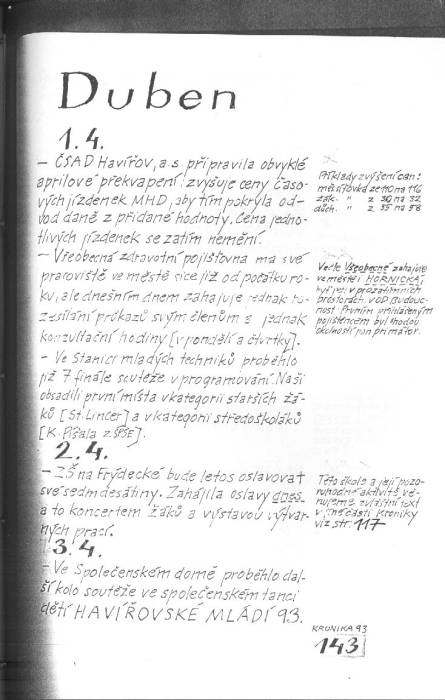 Duben
1.4.
- ČSAD Havířov, a.s. připravila obvyklé
aprílové překvapení: zvyšuje ceny časo-
vých jízdenek MHD, aby tím pokryla od-
vod daně z přidané hodnoty. Cena jedno-
tlivých jízdenek se zatím nemění.
- Všeobecná zdravotní pojišťovna má své
pracoviště ve městě sice již od počátku ro-
ku, ale dnešním dnem zahajuje jednak ro-
zesílání průkazů svým členům a jednak
konzultační hodiny [v pondělí a čtvrtky].
- Ve Stanici mladých techniků proběhlo
již 7 finále soutěže v programování. Naši
obsadili první místa v kategorii starších žá-
ků [St. Lincer] a v kategorii středoškoláků
[K. Píšala z SPŠE].
2.4.
- ZŠ na Frýdecké bude letos oslavovat
své sedmdesátiny. Zahájila oslavy dnes,
a to koncertem žáků a výstavou výtvar-
ných prací.
3.4.
- Ve Společenském domě proběhlo dal-
ší kolo soutěže ve společenském tanci
dětí HAVÍŘOVSKÉ MLÁDÍ 93.
Příklady zvýšení cen:
měsíčovka ze 110 na 116
žák. " z 30 na 32
důch. " z 55 na 58
Vedle Všeobecné zahajuje
ve městě i HORNICKÁ,
byť jen v prozatímních
prostorách v OD Budouc-
nost. Prvním přihlášeným
pojištěncem byl shodou
okolností pan primátor.
Této škole a její pozo-
ruhodné aktivitě vě-
nujeme zvláštní text
v jiné části kroniky
viz str. 117
KRONIKA 93
143